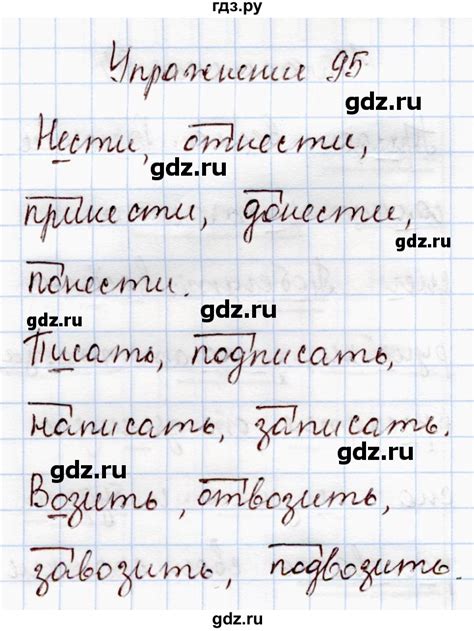 гдз.ру
Упражнение 95
gdz.ru
Нести, отнести,
gdz.ru
принести, донести,
gdz.ru
понести.
gdz.ru gdz.ru
Писать, подписать,
gdz.ru
написать, записать.
gdz.ru gdz.ru
Возить, отвозить,
gdz.ru
завозить, подвозить.
gdz.ru